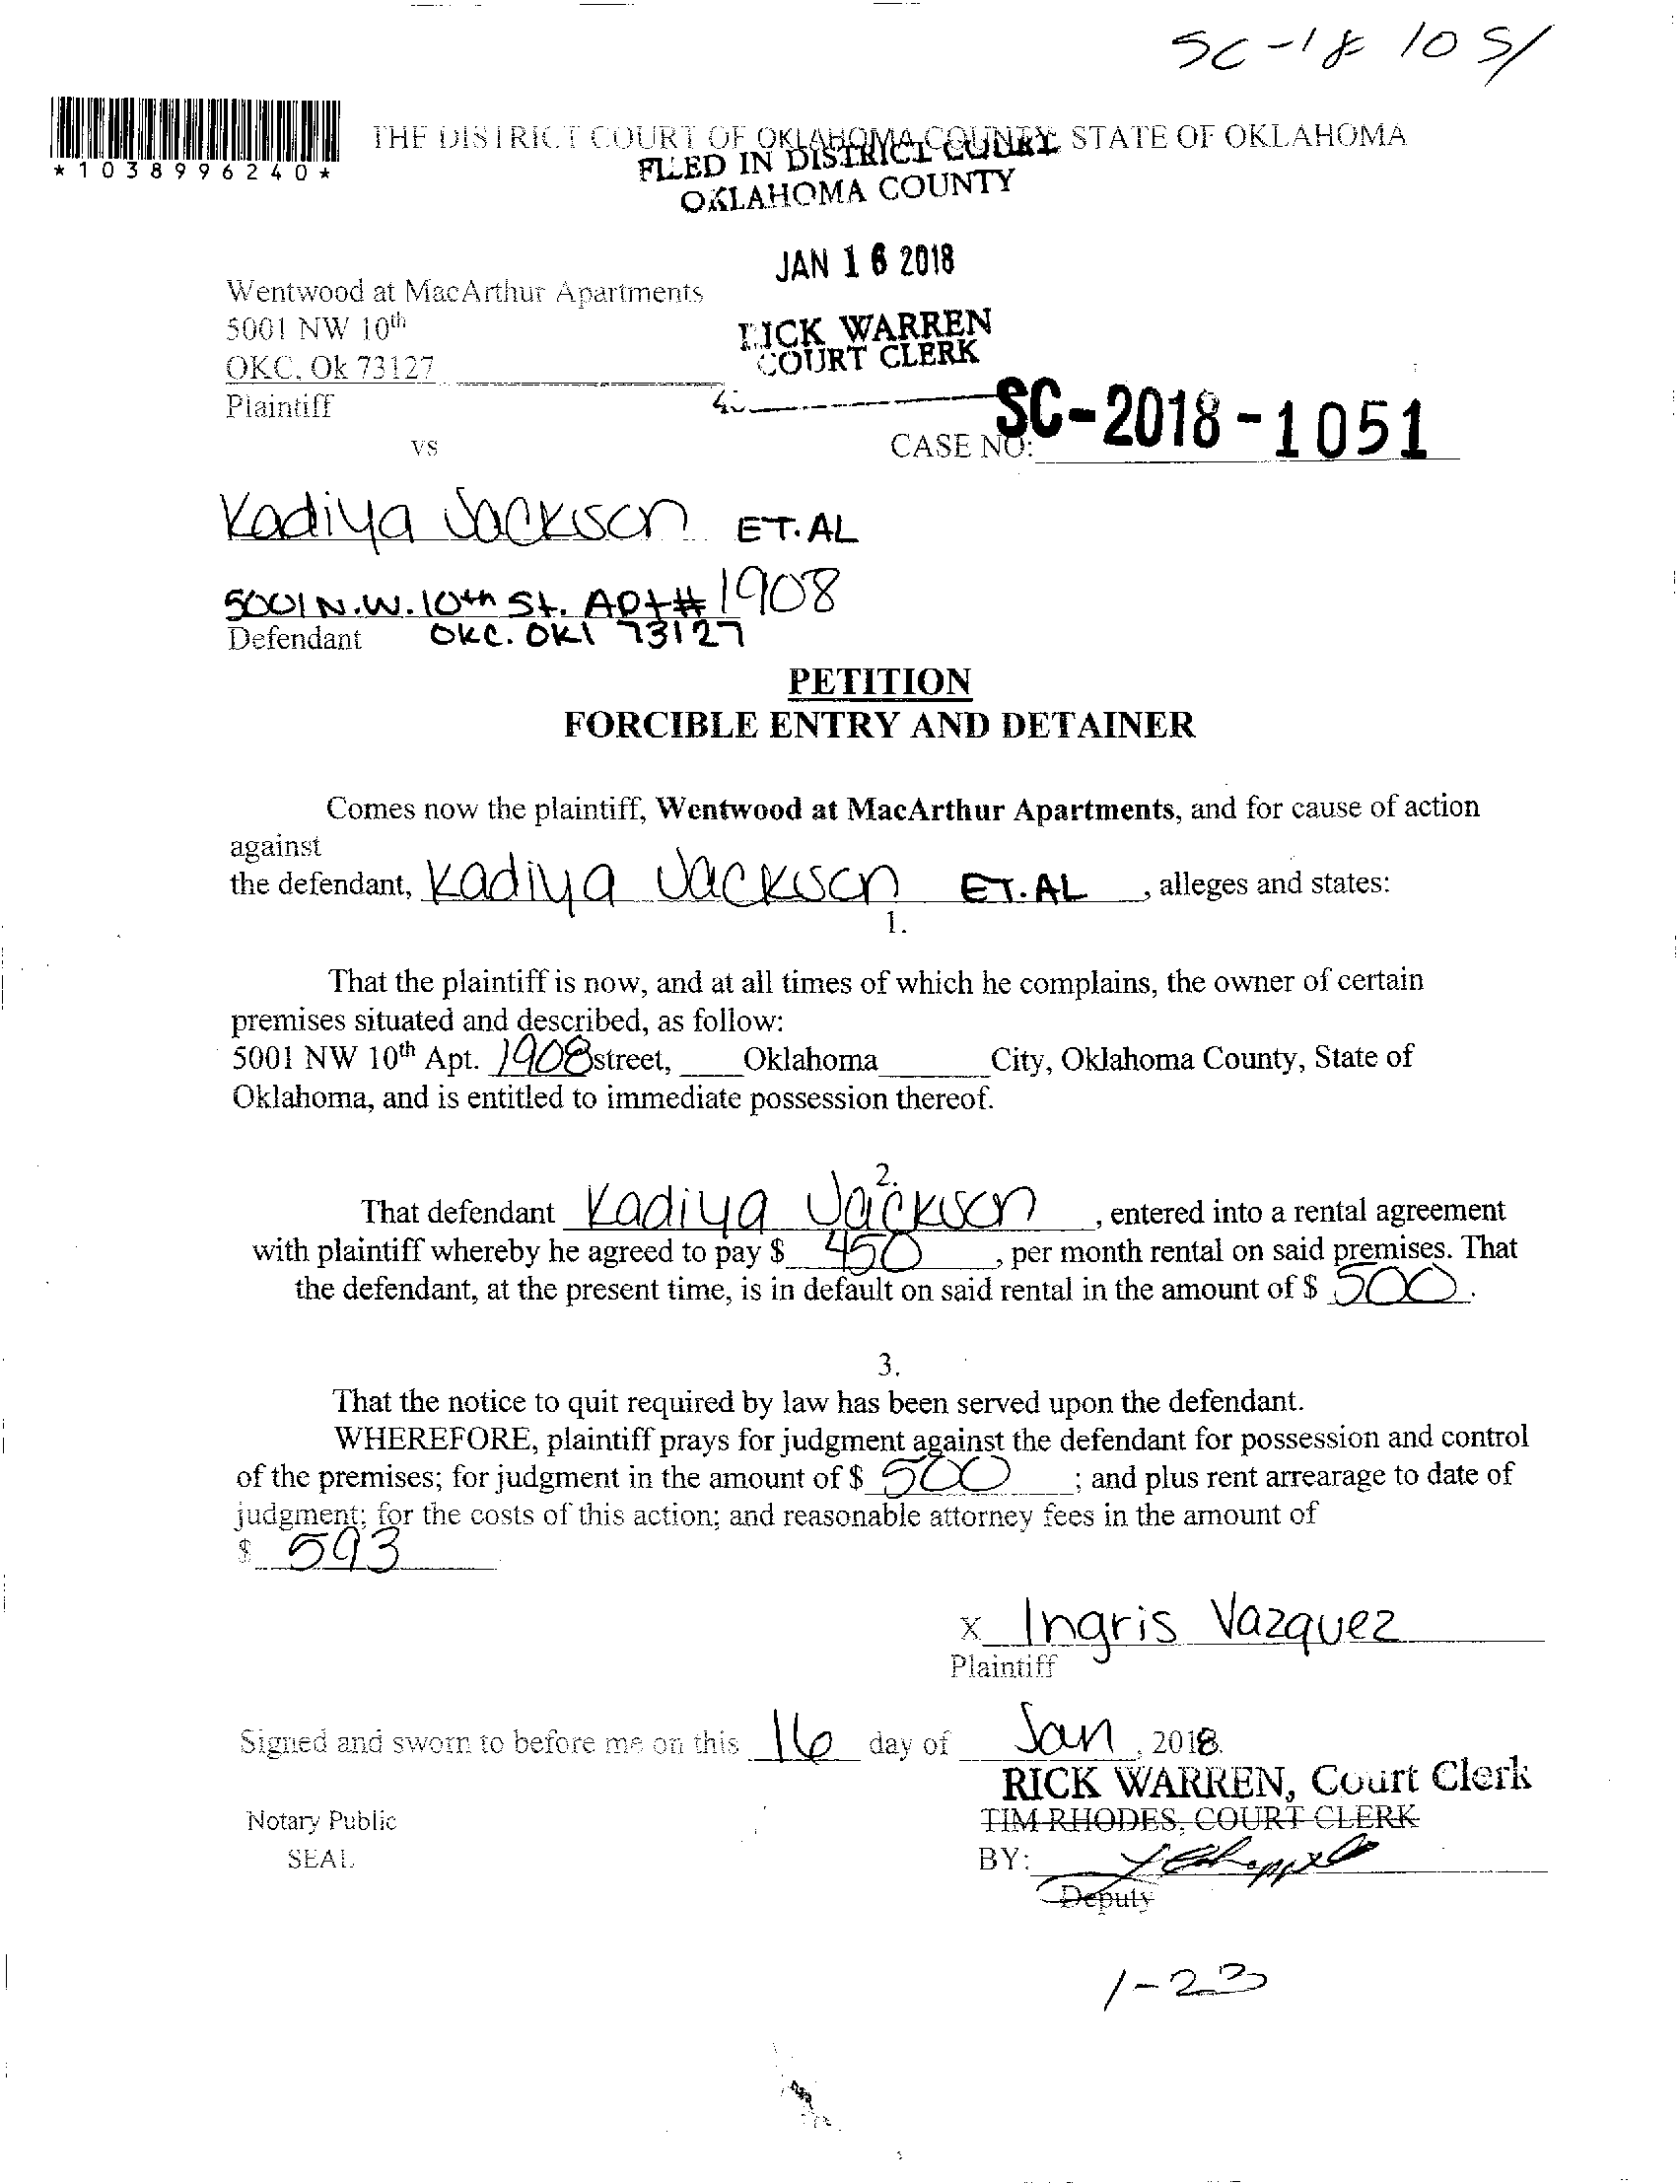 SC-18 1051
THE DISTRICT COURT OF OKLAHOMA COUNTY, STATE OF OKLAHOMA
*1038996240*
FILED IN DISTRICT COURT
OKLAHOMA COUNTY
JAN 16 2018
Wentwood at MacArthur Apartments
5001 NW 10th
RICK WARREN
COURT CLERK
OKC, Ok 73127
Plaintiff
SC-2018-1051
vs
CASE NO:
Kadiya Jackson ET. AL
5001 N.W. 10th St. APt# 1908
Defendant OKC. OKl 73127
PETITION
FORCIBLE ENTRY AND DETAINER
Comes now the plaintiff, Wentwood at MacArthur Apartments, and for cause of action
against
the defendant, Kadiya Jackson ET. AL, alleges and states:
1.
That the plaintiff is now, and at all times of which he complains, the owner of certain
premises situated and described, as follow:
5001 NW 10th Apt. 1908 street, ____Oklahoma______City, Oklahoma County, State of
Oklahoma, and is entitled to immediate possession thereof.
2.
That defendant Kadiya Jackson, entered into a rental agreement
with plaintiff whereby he agreed to pay $ 450, per month rental on said premises. That
the defendant, at the present time, is in default on said rental in the amount of $ 500.
3.
That the notice to quit required by law has been served upon the defendant.
WHEREFORE, plaintiff prays for judgment against the defendant for possession and control
of the premises; for judgment in the amount of $ 500; and plus rent arrearage to date of
judgment; for the costs of this action; and reasonable attorney fees in the amount of
$ 593
x Ingris Vazquez
Plaintiff
Signed and sworn to before me on this 16 day of Jan, 2018.
RICK WARREN, Court Clerk
Notary Public
TIM RHODES, COURT CLERK
SEAL
BY:
Deputy
1-23